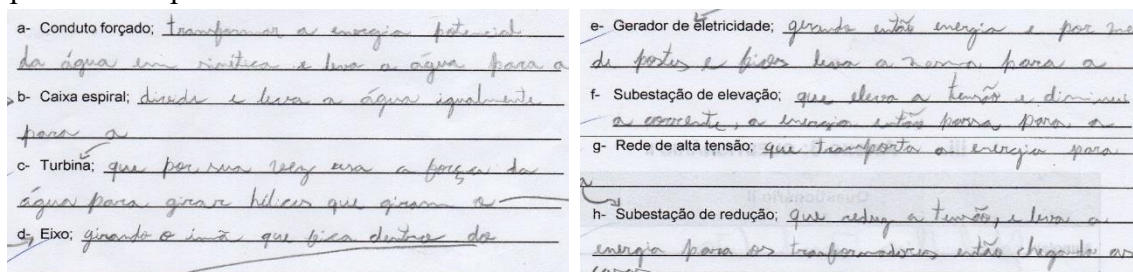 a- Conduto forçado; transformar a energia potencial
da água em cinética e leva a água para a
b- Caixa espiral; divide e leva a água igualmente
para a
c- Turbina; que por sua vez usa a força da
água para girar hélices que giram o
d- Eixo; girando o imã que fica dentro do
e- Gerador de eletricidade; gerando então energia e por me
de postes e fios leva a mesma para a
f- Subestação de elevação; que eleva a tensão e diminui
a corrente, a energia então passa para a
g- Rede de alta tensão; que transporta a energia para
a
h- Subestação de redução; que reduz a tensão, e leva a
energia para os tranformadores então chegando as
casas